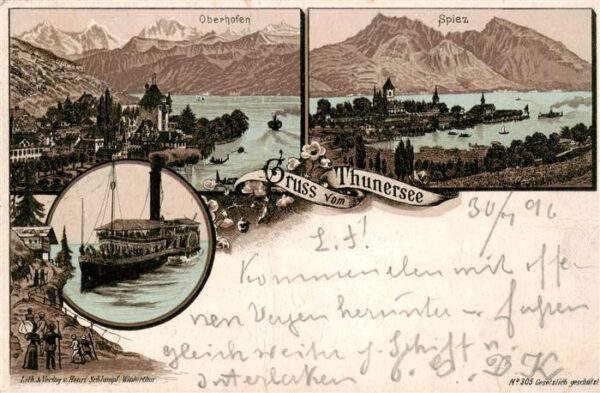 Oberhofen
Spiez
Gruss vom Thunersee
30/7 96
L. F!
Kommen eben mit offe-
nen Wagen herunter – fahren
gleich weiter p. Schiff n.
Interlaken
Lith. & Verlag v. Henri Schlumpf. Winterthur.
Nº 305 Gesetzlich geschützt